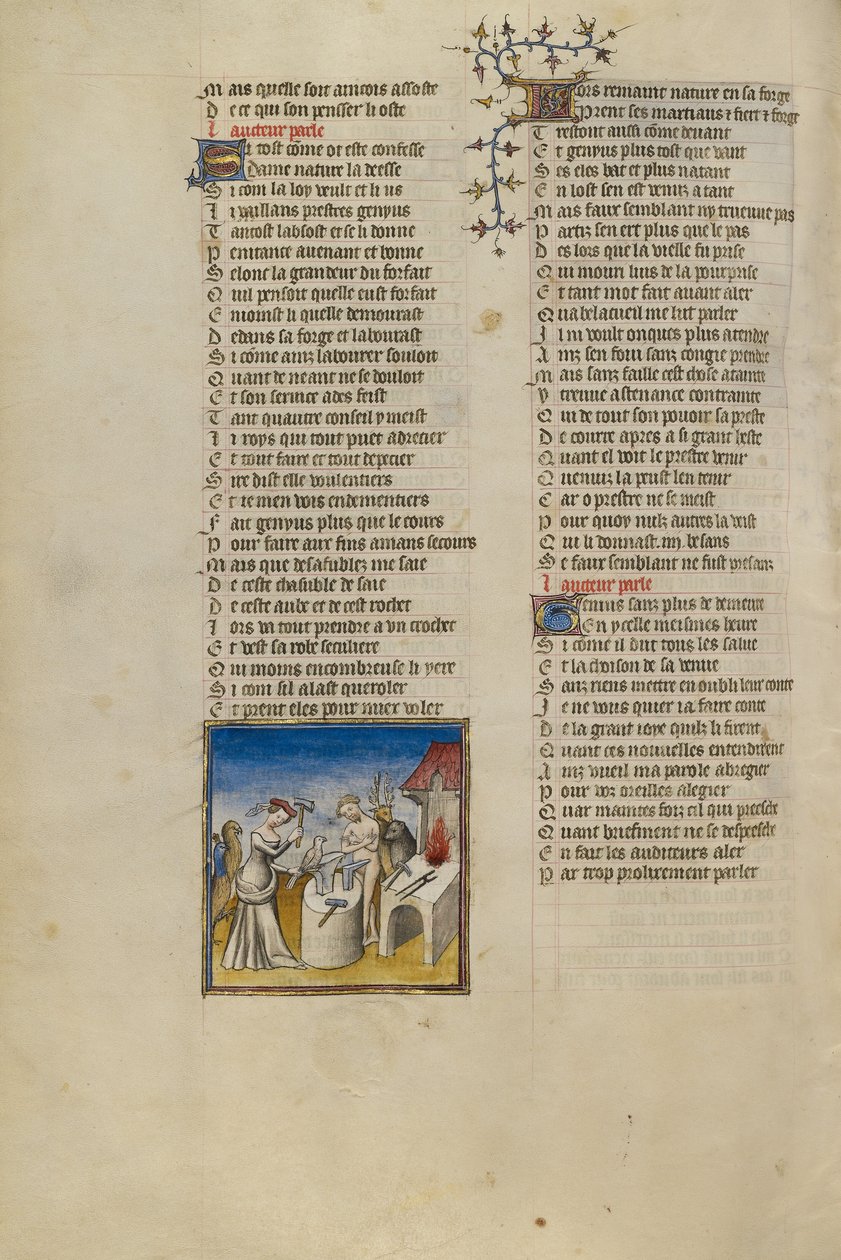 Mais quelle soit aincois assoste
De ce qui son pensser li oste
Laucteur parle
Si tost cõme ot este confesse
Dame nature la deesse
Si com la loy veult et li us
Li vaillans prestres genyus
Tantost labsost et se li donne
Penitance auenant et bonne
Selonc la grandeur du forfait
Quil pensoit quelle eust forfait
Enioinst li quelle demourast
Dedans sa forge et labourast
Si cõme ainz labourer souloit
Quant de neant ne se douloit
Et son seruice ades feist
Tant quautre conseil y meist
Li roys qui tout puet adrecier
Et tout faire et tout depecier
Sire dist elle voulentiers
Et ie men vois endementiers
Fait genyus plus que le cours
Pour faire aux fins amans secours
Mais que desafublez me saie
De ceste chasuble de saie
De ceste aube et de cest rochet
Lors va tout prendre a vn crochet
Et vest sa robe seculiere
Qui moins encombreuse li yere
Si com sil alast queroler
Et prent eles pour nuer voler
Lors remaint nature en sa forge
Prent ses martiaus ⁊ fiert ⁊ forge
Trestout aussi cõme deuant
Et genyus plus tost que vant
Ses eles bat et plus natant
En lost sen est venuz a tant
Mais faux semblant ny trueuue pas
Partiz sen ert plus que le pas
Des lors que la vielle fu prise
Qui mouuri luis de la pourprise
Et tant mot fait auant aler
Qua belacueil me lut parler
Il ni voult onques plus atendre
Ainz sen foui sanz congie prendre
Mais sanz faille cest chose atainte
Y treuue astenance contrainte
Qui de tout son pouoir sapreste
De courre apres a si grant heste
Quant el voit le prestre venir
Quenuiz la peust len tenir
Car o prestre ne se meist
Pour quoy nulz autres la veist
Qui li donnast .iiij. besans
Se faux semblant ne fust presanz
Laucteur parle
Genius sanz plus de demeure
En ycelle meismes heure
Si cõme il dut tous les salue
Et lachoison de sa venue
Sanz riens mettre en oubli leur conte
Je ne vous quier ia faire conte
De la grant ioye quilz li firent
Quant ces nouuelles entendirent
Ainz vueil ma parole abregier
Pour voz oreilles alegier
Quar maintes foiz cil qui preesche
Quant briefment ne se despeesche
En fait les auditeurs aler
Par trop prolixement parler